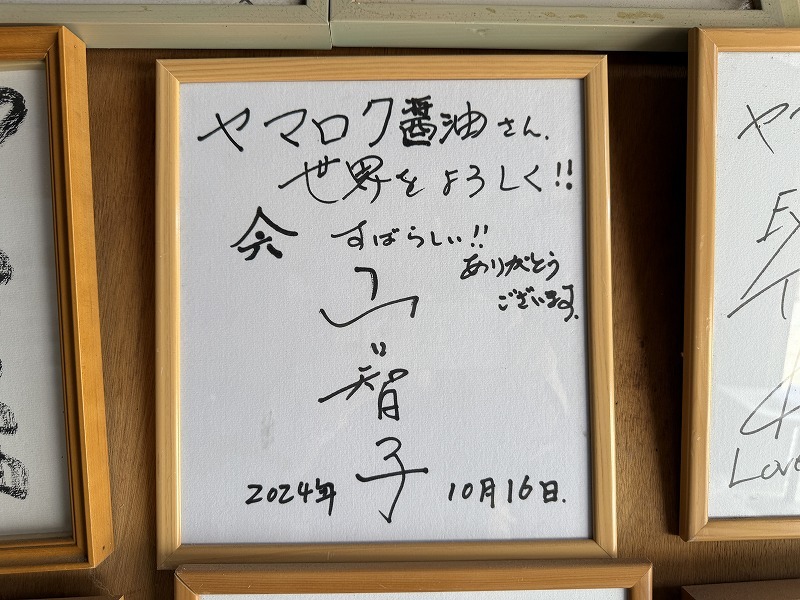 ヤマロク醤油さん.
世界をよろしく!!
すばらしい!!
ありがとう
ございます.
山
智
子
2024年 10月16日.
ヤマ
Love